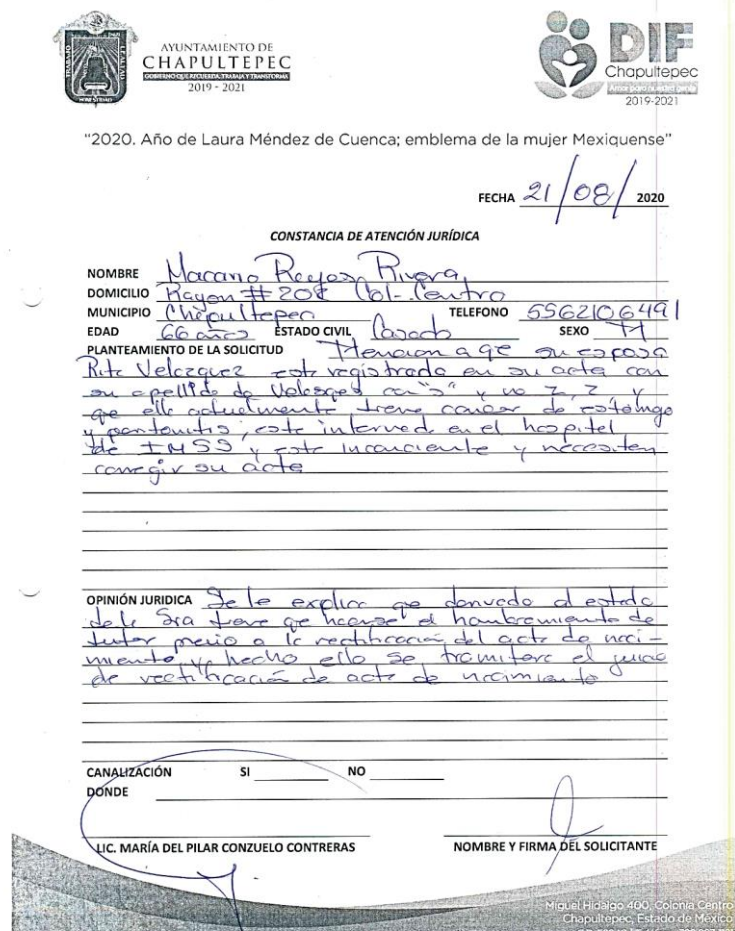 AYUNTAMIENTO DE
CHAPULTEPEC
GOBIERNO QUE RECUERDA, TRABAJA Y TRANSFORMA
2019 - 2021
TRABAJO
LEALTAD
HONESTIDAD
DIF
Chapultepec
Amor para nuestra gente
2019-2021
"2020. Año de Laura Méndez de Cuenca; emblema de la mujer Mexiquense"
FECHA 21/08/2020
CONSTANCIA DE ATENCIÓN JURÍDICA
NOMBRE Macario Reyes Rivera
DOMICILIO Rayon # 208 Col- Centro
MUNICIPIO Chapultepec TELEFONO 5562106491
EDAD 66 años ESTADO CIVIL Casado SEXO M
PLANTEAMIENTO DE LA SOLICITUD Menciona qe su esposa
Rita Velazquez esta registrada en su acta con
su apellido de Velasques con "s" y no z, z y
que ella actualmente tiene cancer de estomgo
y , esta internad en el hospital
de IMSS y esta inconciente y necesitan
corregir su acta
OPINIÓN JURIDICA Se le explica que derivado al estado
de la Sra tiene que hacerse el nombramiento de
tutor previo a la rectificación del acta de naci-
miento, y hecho ello se tramitara el juicio
de rectificación de acta de nacimiento
CANALIZACIÓN SI NO
DONDE
LIC. MARÍA DEL PILAR CONZUELO CONTRERAS
NOMBRE Y FIRMA DEL SOLICITANTE
Miguel Hidalgo 400, Colonia Centro
Chapultepec, Estado de México